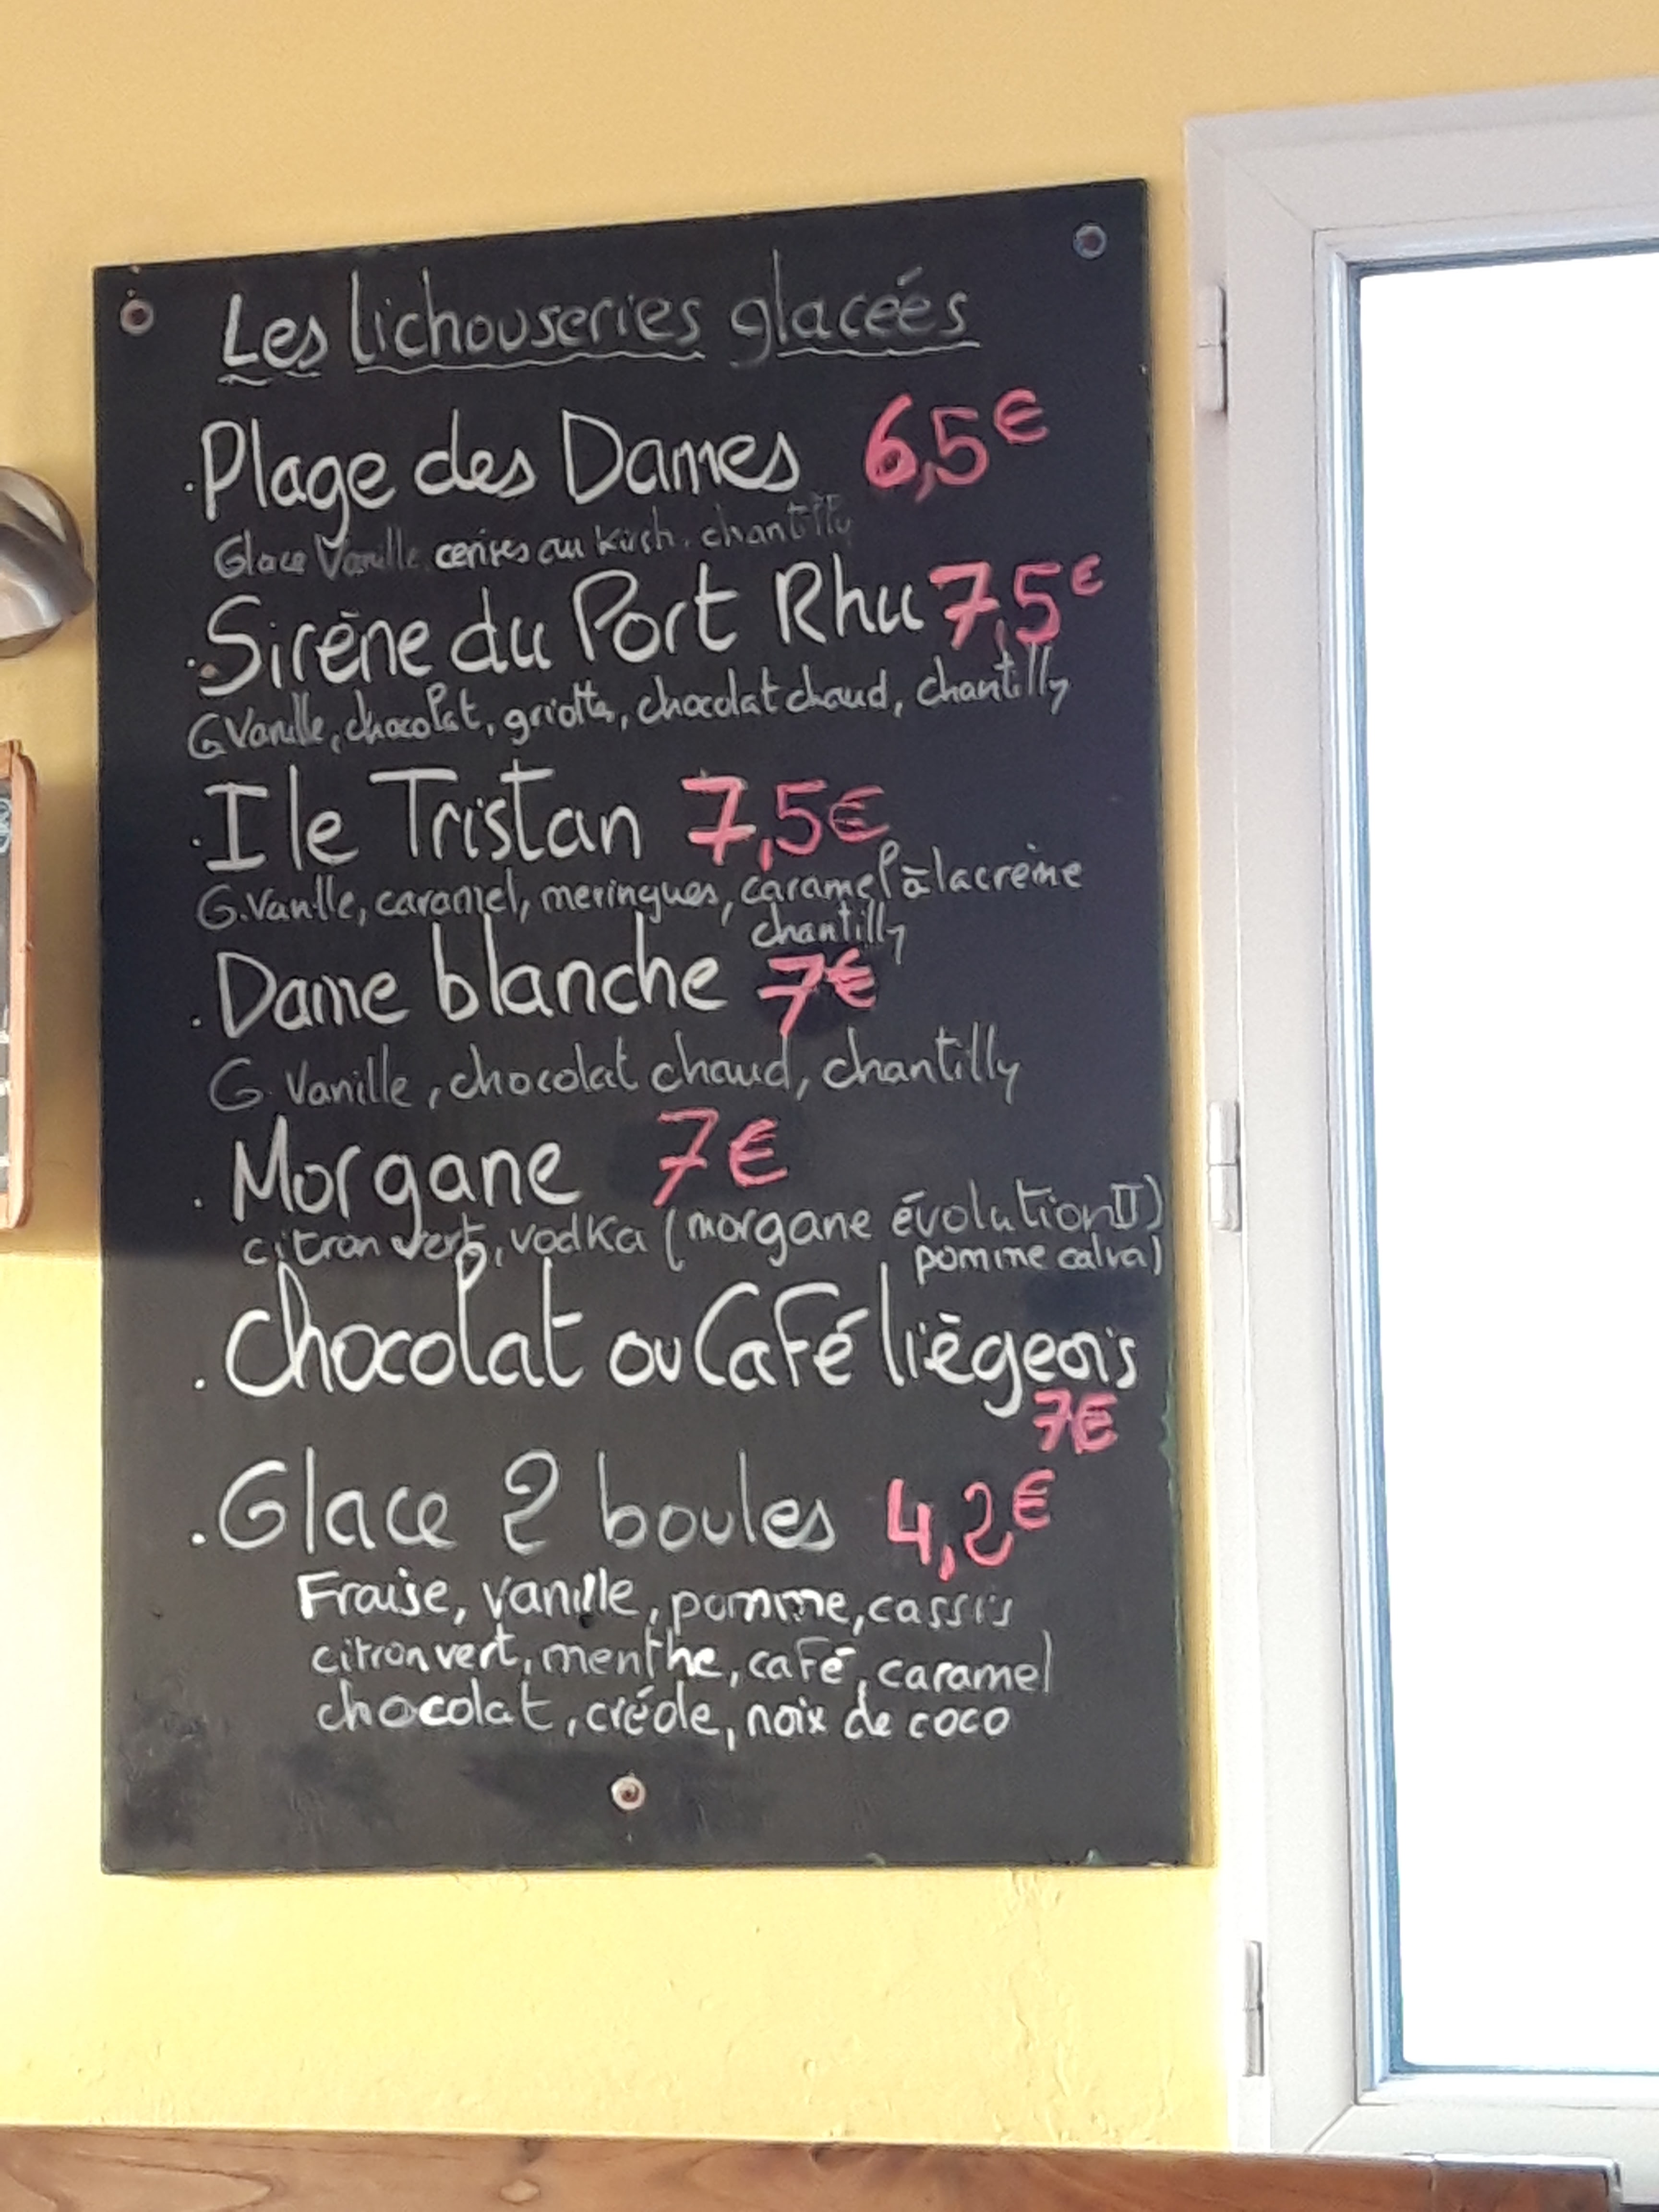 Les lichouseries glacées
.Plage des Dames 6,5€
Glace Vanille, cerises au Kirsh, chantilly
.Sirène du Port Rhu 7,5€
G Vanille, chocolat, griotte, chocolat chaud, chantilly
.Ile Tristan 7,5€
G.Vanille, caramel, meringues, caramel à la crème
chantilly
.Dame blanche 7€
G. Vanille, chocolat chaud, chantilly
.Morgane 7€
citron vert, vodka (morgane évolution II)
pomme calva)
.Chocolat ou Café liègeois
7€
.Glace 2 boules 4,2€
Fraise, vanille, pomme, cassis
citron vert, menthe, café, caramel
chocolat, créole, noix de coco